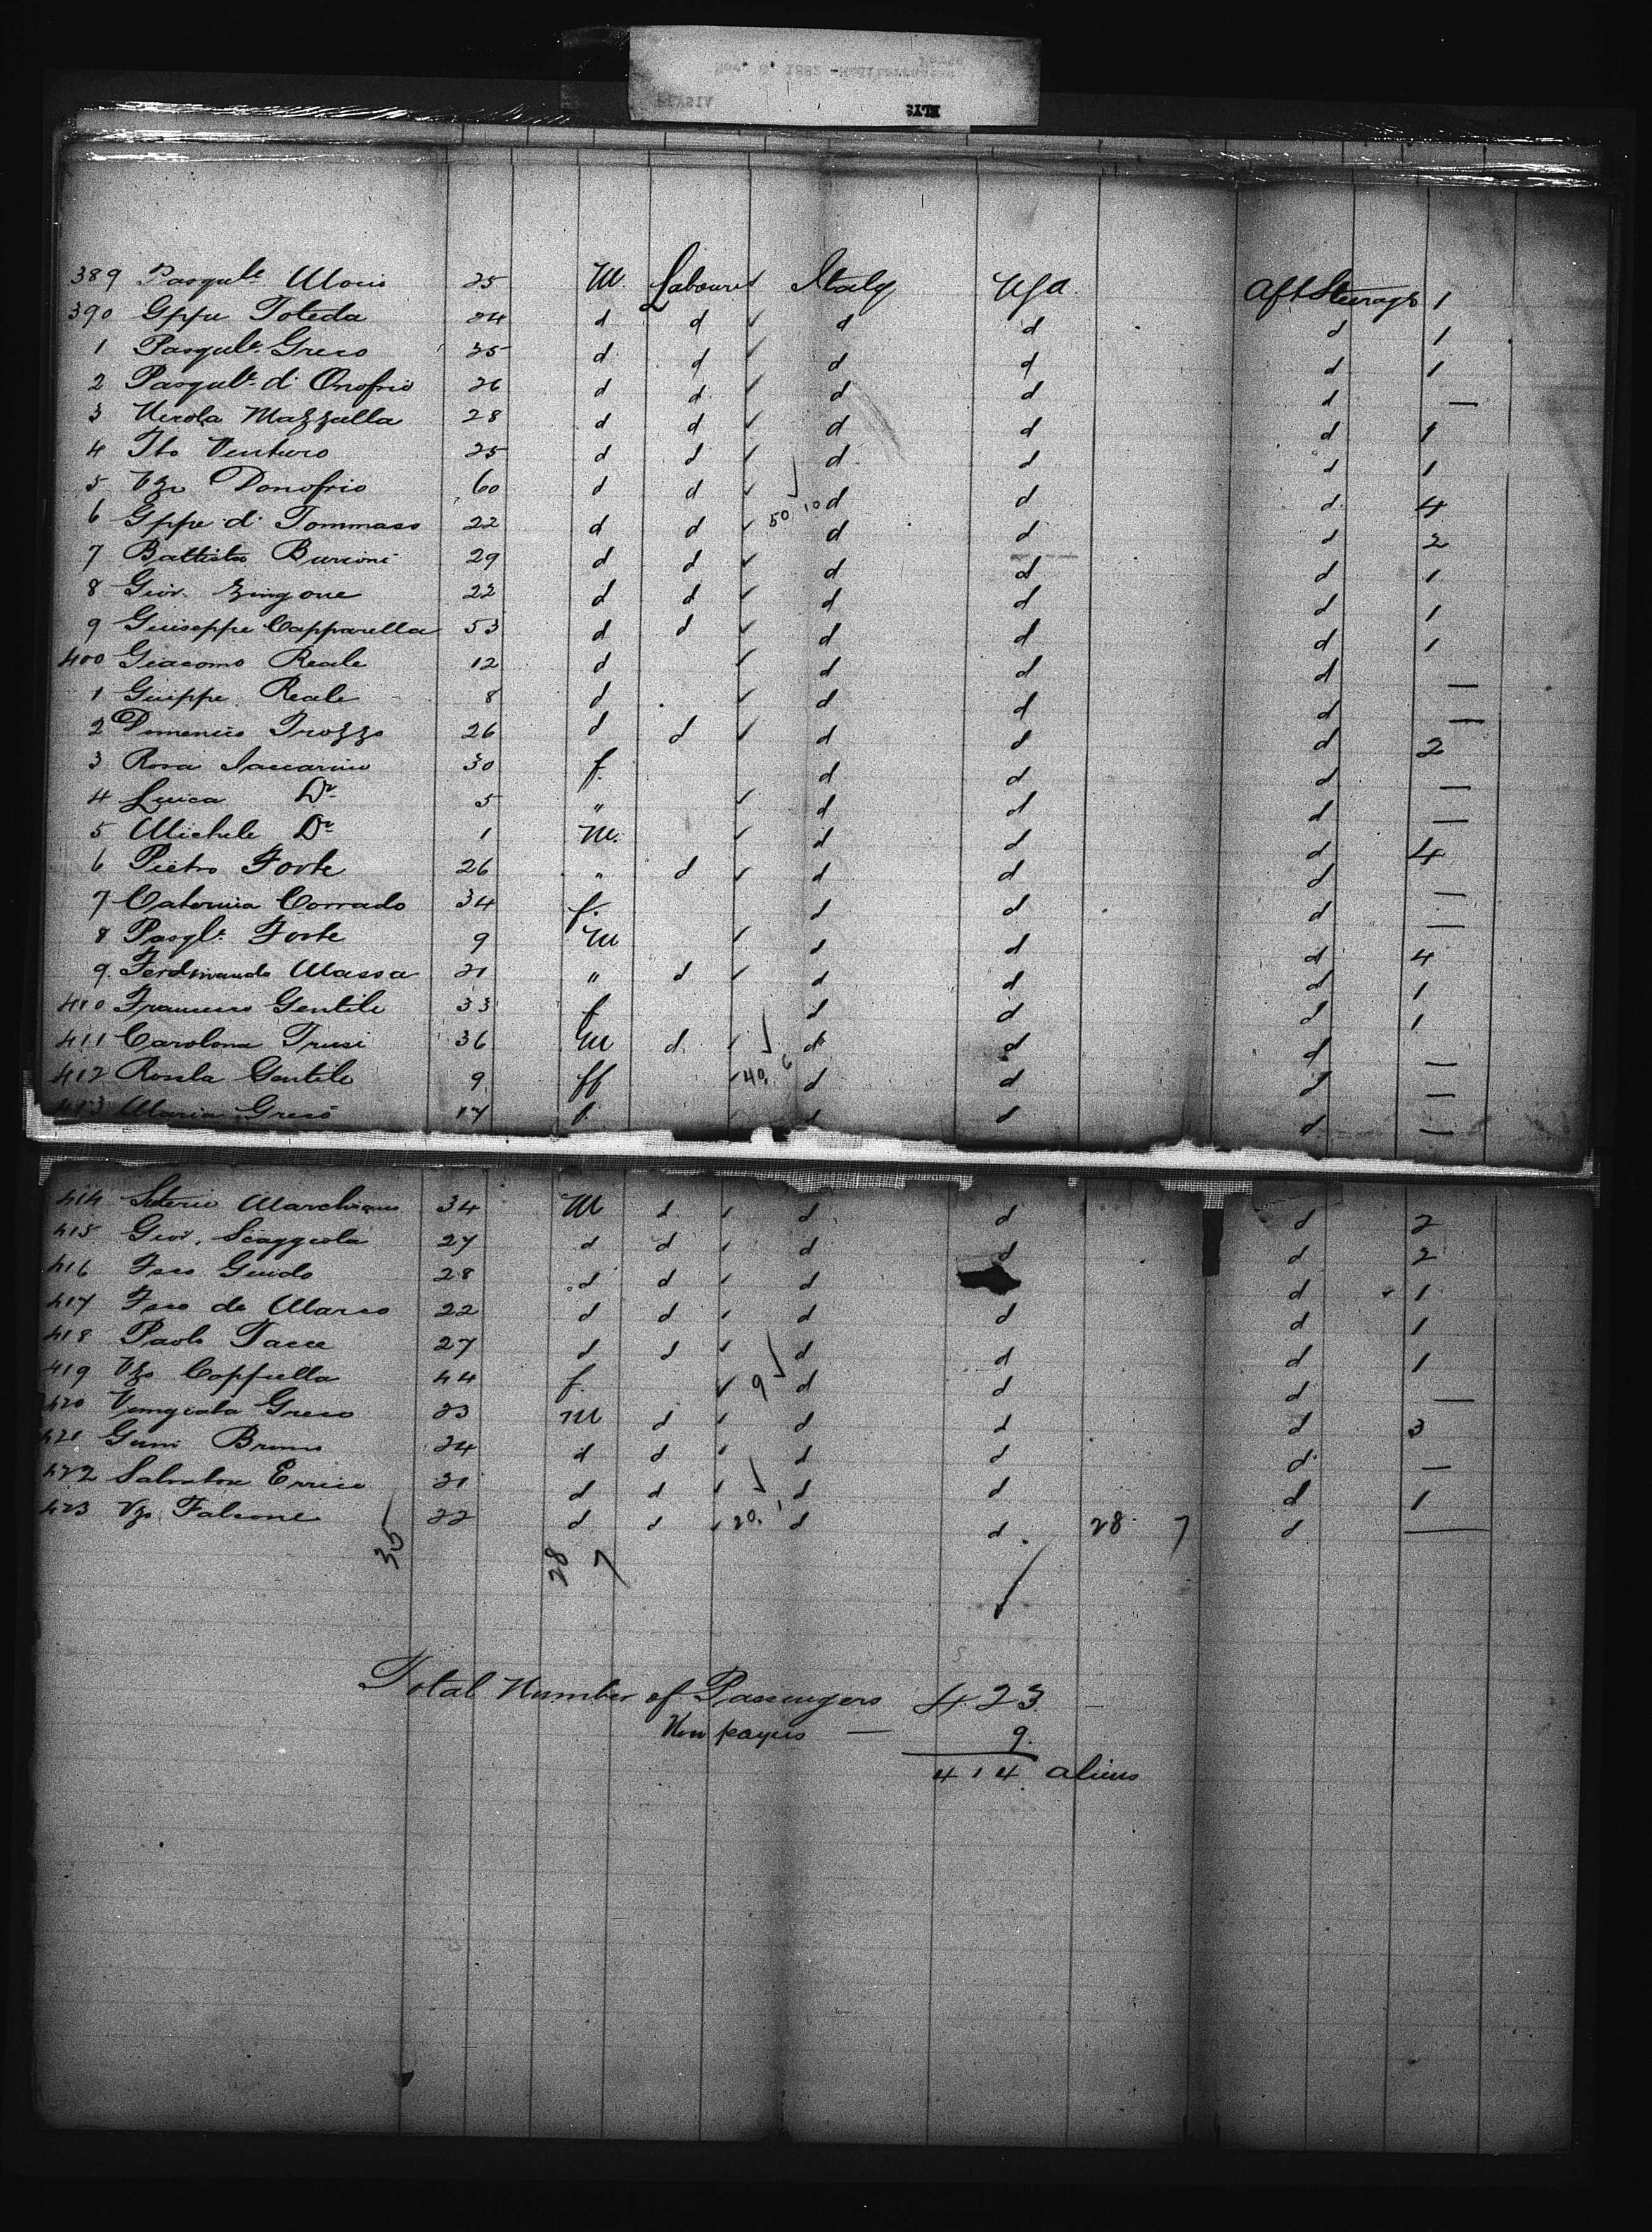 389 Pasqule Mois 25 M. Labourer Italy USA Aft Steerage 1
390 Gppe Toteda 24 d d ✓ d d d 1
1 Pasqule Greco 35 d d ✓ d d d 1
2 Pasqule di Onofrio 26 d d ✓ d d d —
3 Nicola Mazzulla 28 d d ✓ d d d 1
4 Ito Venturo 25 d d ✓ d d d 1
5 Vzo Donofrio 60 d d ✓ d d d 4
6 Gppe di Tommaso 22 d d ✓ 50 10 d d d 2
7 Battista Burioni 29 d d ✓ d d d 1
8 Giov. Zingone 22 d d ✓ d d d 1
9 Guiseppe Capparella 53 d d ✓ d d d 1
400 Giacomo Reale 12 d ✓ d d d —
1 Guippe Reale 8 d ✓ d d d —
2 Domenico Trozzo 26 d d ✓ d d d 2
3 Rosa Iaccarino 30 f. d d d —
4 Luica Do 5 " ✓ d d d —
5 Michele Do 1 M. ✓ d d d 4
6 Pietro Forte 26 " d ✓ d d d —
7 Caterina Corrado 34 f. d d d —
8 Pasqle Forte 9 M ✓ d d d 4
9. Ferdinando Massa 21 " d ✓ d d d 1
410 Francesco Gentile 33 f d d d 1
411 Carolona Trusi 36 M d. ✓ d d d —
412 Rosola Gentile 9 ff ✓ 40. 6 d d d —
413 Maria Greco 17 f. d d d —
414 Marchiano 34 M d ✓ d d d 2
415 Giov. Scaggiola 27 d d ✓ d d d 2
416 Fsco Guido 28 d d ✓ d d 1
417 Fsco de Marco 22 d d ✓ d d d 1
418 Paolo Tacce 27 d d ✓ d d d 1
419 Vzo Coppulla 44 f. ✓ 9 d d d —
420 Greco 23 M d ✓ d d d 3
421 Bruno 24 d d ✓ d d d —
422 Salvatore Errico 21 d d ✓ d d d 1
423 Vzo Falcone 22 d d ✓ 20. 1 d d 28 7 d —
35 28 7
Total Number of Passengers 423
Non payers — 9.
414 aliens